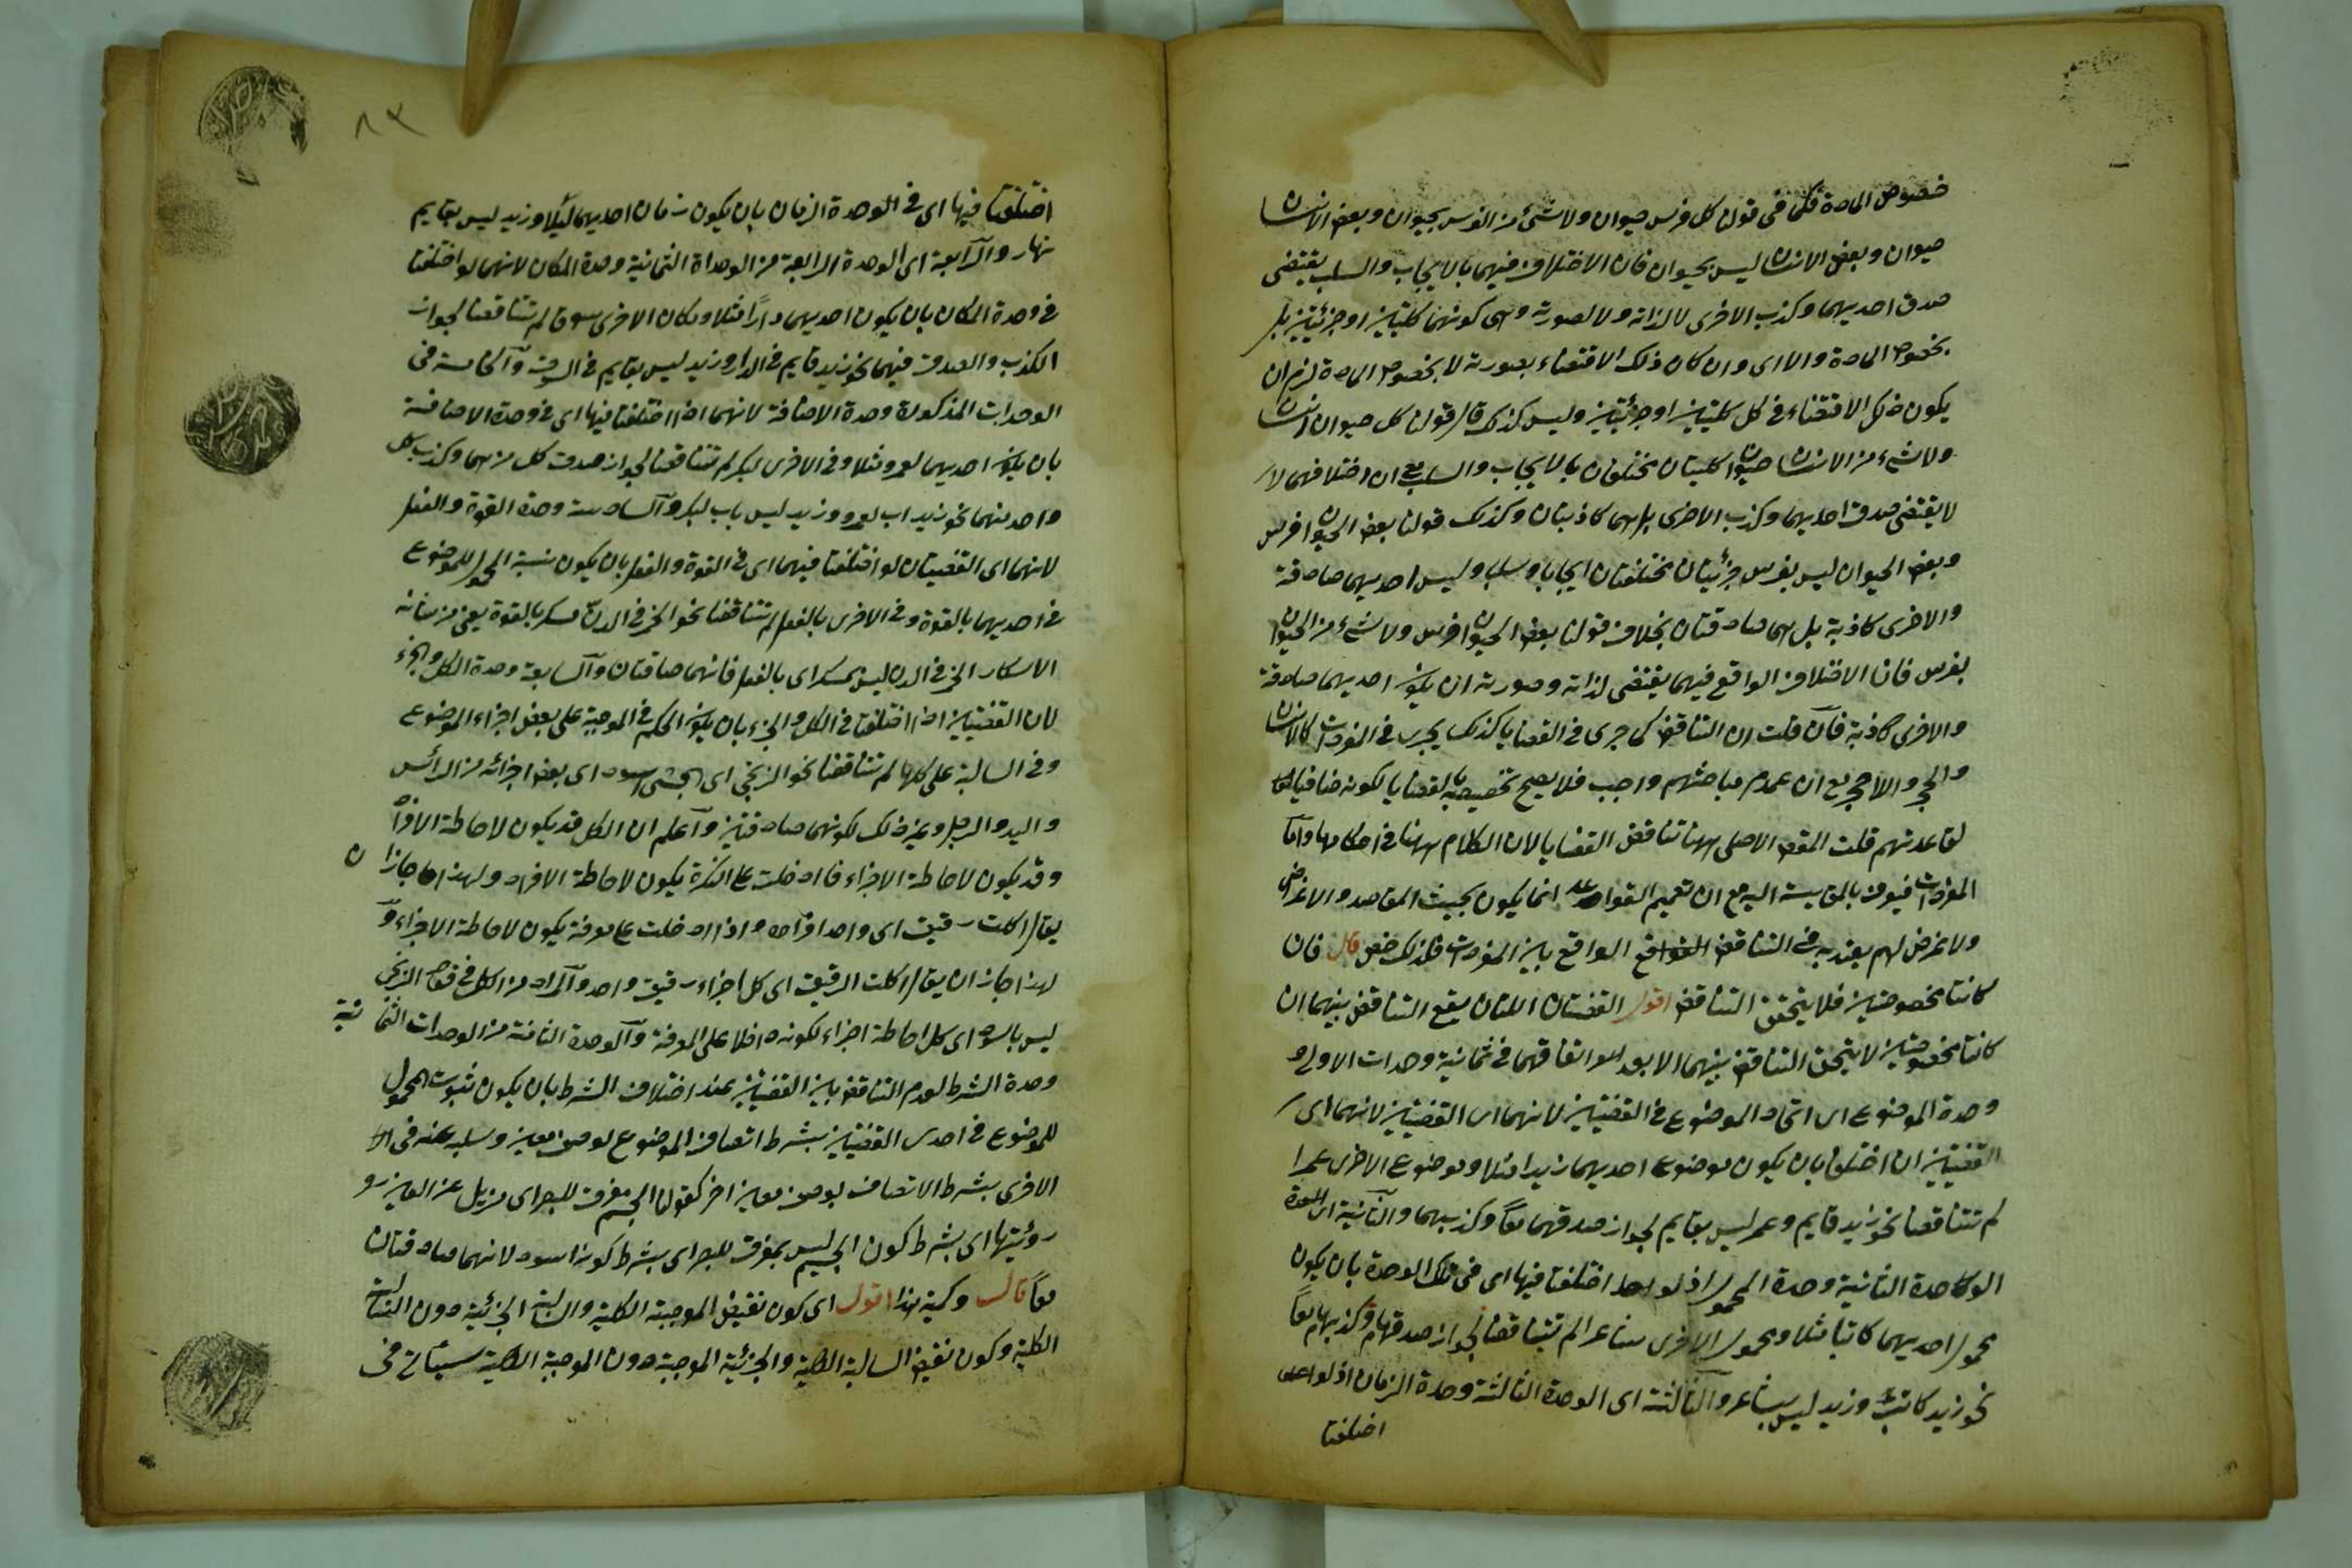 خصوص المادة فكما فى قولنا كل فرس حيوان ولا شئ من الفرس بحيوان وبعض الانسان
حيوان وبعض الانسان ليس بحيوان فان الاختلاف فيهما بالايجاب والسلب يقتضى
صدق احديهما وكذب الاخرى لا لذاته ولا لصورته وهى كونهما كليتين او جزئيتين بل
بخصوص المادة والا اى وان كان ذلك الاقتضاء بصورته لا بخصوص المادة لزم ان
يكون ذلك الاقتضاء فى كل كليتين او جزئيتين وليس كذلك قال قولنا كل حيوان انسان
ولا شئ من الانسان حيوان كليتان مختلفان بالايجاب والسلب مع ان اختلافهما لا
لا يقتضى صدق احديهما وكذب الاخرى بل هما كاذبتان وكذلك قولنا بعض الحيوان فرس
وبعض الحيوان ليس بفرس جزئيتان مختلفتان ايجابا وسلبا وليس احديهما صادقة
والاخرى كاذبة بل هما صادقتان بخلاف قولنا بعض الحيوان فرس ولا شئ من الحيوان
بفرس فان الاختلاف الواقع فيهما يقتضى لذاته وصورته ان يكون احديهما صادقة
والاخرى كاذبة فان قلت ان التناقض كما جرى فى القضايا كذلك يجرى فى المفردات كالانسان
والحجر واللاحجر مع ان عموم مباحثهم واجب فلا يصح تخصيصه بالقضايا لكونه منافيا
لقاعدتهم قلت المقص الاصلى ههنا تناقض القضايا لان الكلام ههنا فى احكامها واما
المفردات فيعرف بالمقايسة اليه مع ان تعميم القواعد انما يكون بحيث المقاصد والاغراض
ولا غرض لهم يعتد به فى التناقض الواقع بين المفردات فلذلك خص قال فان
كانتا مخصوصتين فلا يتحقق التناقض اقول القضيتان اللتان يقع التناقض بينهما ان
كانتا مخصوصتين لا يتحقق التناقض بينهما الا بعد اتفاقهما فى ثمانية وحدات الاولى
وحدة الموضوع اى اتحاد الموضوع فى القضيتين لانهما اى القضيتين لانهما اى
القضيتين ان اختلفا بان يكون موضوع احديهما زيدا مثلا وموضوع الاخرى عمرا
لم تتناقضا نحو زيد قايم وعمر ليس بقايم لجواز صدقهما معا وكذبهما والثانية اى الوحدة
الثانية وحدة المحمول اذ لو اختلفتا فيها اى فى تلك الوحدة بان يكون
محمول احديهما كاتبا مثلا ومحمول الاخرى شاعرا لم تتناقضا لجواز صدقهما وكذبهما معا
نحو زيد كاتب وزيد ليس بشاعر والثالثة اى الوحدة الثالثة وحدة الزمان اذ لو
اختلفتا
٨٣
اختلفتا فيها اى فى الوحدة الزمان بان يكون زمان احديهما ليلا وزيد ليس بقايم
نهار والرابعة اى الوحدة الرابعة من الوحداة الثمانية وحدة المكان لانهما لو اختلفتا
فى وحدة المكان بان يكون احديهما دارا مثلا ومكان الاخرى سوقا لم تتناقضا لجواز
الكذب والصدق فيهما نحو زيد قايم فى الدار وزيد ليس بقايم فى السوق والخامسة فى
الوحدات المذكورة وحدة الاضافة لانهما اذا اختلفتا فيها اى فى وحدة الاضافة
بان يكون احديهما لعمرو مثلا وفى الاخرى لبكر لم تتناقضا لجواز صدق كل منهما وكذب كل
واحد منهما نحو زيد اب لعمرو وزيد ليس باب لبكر والسادسة وحدة القوة والفعل
لانهما اى القضيتان لو اختلفتا فيهما اى فى القوة والفعل بان يكون نسبة المحمول للموضوع
فى احديهما بالقوة وفى الاخرى بالفعل لم تتناقضا نحو الخمر فى الدن مسكر بالقوة يعنى من شانه
الاسكار الخمر فى الدن ليس بمسكر اى بالفعل فانهما صادقتان والسابعة وحدة الكل والجزء
لان القضيتين اذا اختلفتا فى الكل والجزء بان يكون الحكم فى الموجبة على بعض اجزاء الموضوع
وفى السالبة على كلها لم تتناقضا نحو الزنجى اى الحبشى اسود اى بعض اجزائه من الرأس
واليد والرجل وغير ذلك لكونهما صادقتين واعلم ان الكل قد يكون لاحاطة الافراد
وقد يكون لاحاطة الاجزاء فاذا دخلت على النكرة يكون لاحاطة الافراد ولهذا جاز ان
يقال اكلت رقيق اى واحد افراده واذا ادخلت على معرفة يكون لاحاطة الاجزاء و
لهذا جاز ان يقال اكلت الرقيق اى كل اجزاء رقيق واحد والمراد من الكل فى قوله الزنجى
ليس باسود اى كل احاطة اجزاء لكونه داخلا على المعرفة والوحدة الثامنة من الوحدات الثمانية
وحدة الشرط لعدم التناقض بين القضيتين عند اختلاف الشرط بان يكون ثبوت المحمول
للموضوع فى احدى القضيتين بشرط اتصاف الموضوع لوصف معين وسلبه عنه فى
الاخرى بشرط الاتصاف بوصف معين اخر كقولنا الجسم مفرق للبصر اى مزيل عن العين
رؤيتها اى بشرط كون الجسم ليس بمفرق للبصر اى بشرط كونه اسود لانهما صادقتان
معا قال وكمية هذا اقول اى كون نقيض الموجبة الكلية والسالبة الجزئية دون السالبة
الكلية وكون نقيض السالبة الكلية والجزئية الموجبة دون الموجبة الكلية سيأتى فى